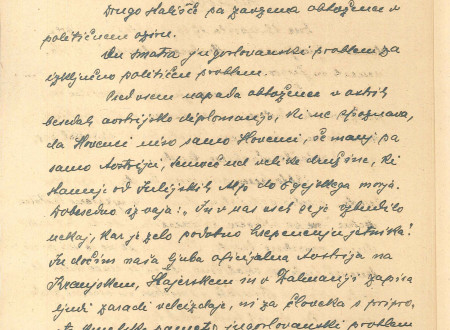 Drugo stališče pa zavzema obtoženec v
političnem oziru.
On smatra jugoslovanski problem za
izključno političen problem.
Predvsem napada obtoženec v ostrih
besedah avstrijsko diplomacijo, ki ne spoznava,
da Slovenci niso samo Slovenci, še manj pa
samo Avstrijci, temveč ud velike družine, ki
stanuje od Julijskih Alp do Egejskega morja.
Dobesedno izvaja: „In v nas vseh se je vzbudilo
nekaj, kar je zelo podobno hrepenenju jetnika!
In dočim naša ljuba oficijalna Avstrija na
Kranjskem, Štajerskem in v Dalmaciji zapira
ljudi zaradi veleizdaje, ni za človeka s pripro-
pametjo jugoslovanski problem